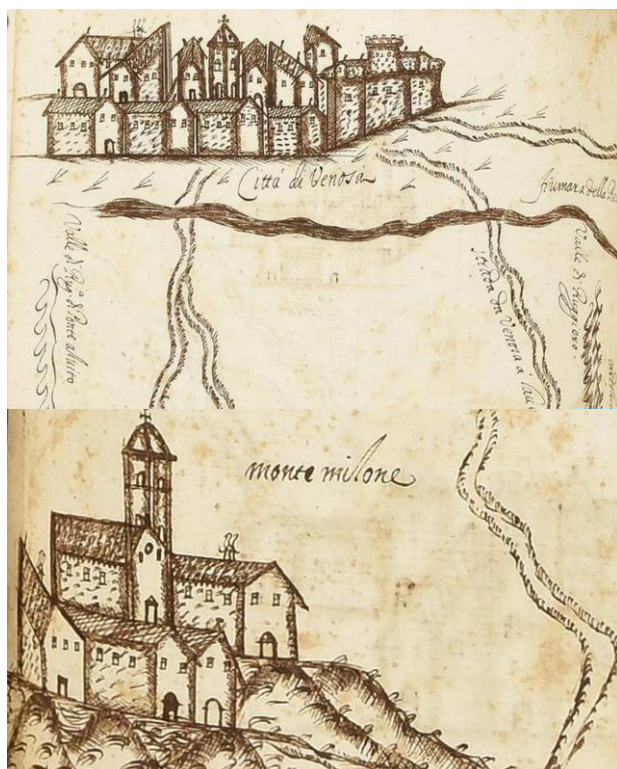 Città di Venosa
fiumara della
Valle di
strada da Venosa a
Valle di Ruggiero.
monte milone